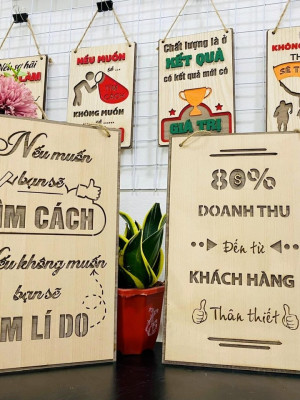 NẾU MUỐN
CÓ....
KHÔNG MUỐN
MẤT
Chất lượng là ở
KẾT QUẢ
có kết quả mới có
GIÁ TRỊ
KHÔNG
THAM
SẼ
Nếu muốn
bạn sẽ
ÌM CÁCH
Nếu không muốn
bạn sẽ
ÌM LÍ DO
80%
DOANH THU
Đến từ
KHÁCH HÀNG
Thân thiết